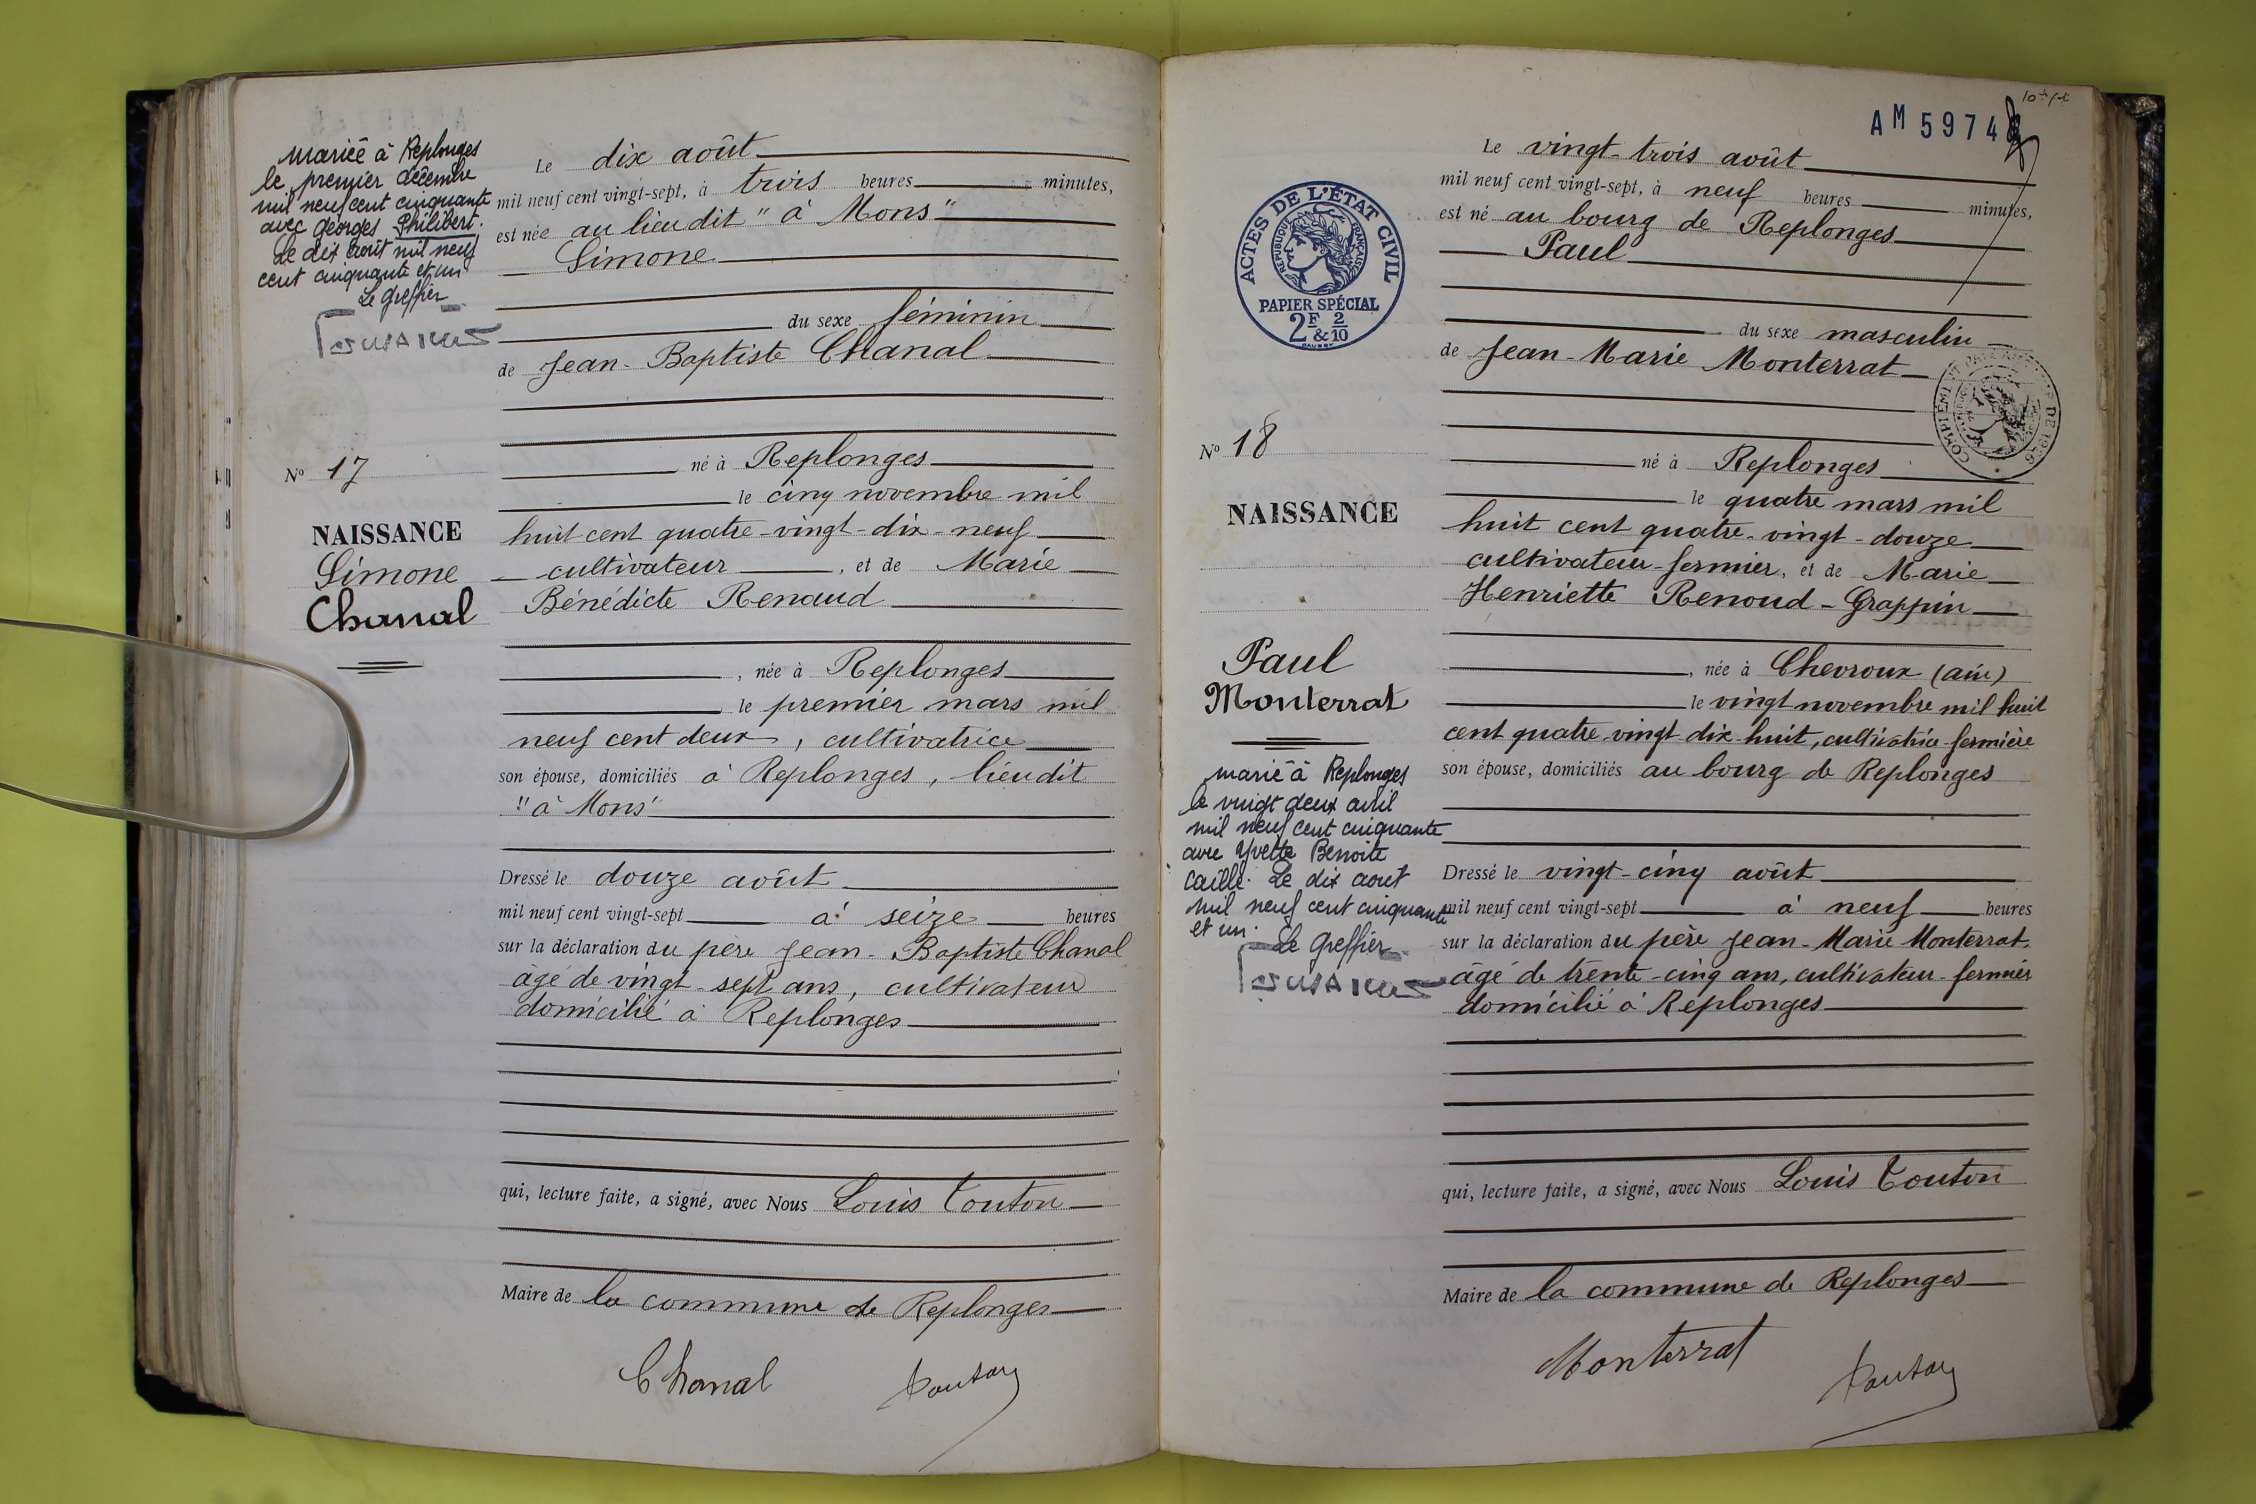 mariée à Replonges
le premier décembre
mil neuf cent cinquante
avec Georges Philibert.
Le dix août mil neuf
cent cinquante et un
Le Greffier
No 17
NAISSANCE
Simone
Chanal
Le dix août
mil neuf cent vingt-sept, à trois heures minutes,
est née au lieu dit "à Mons"
Simone
du sexe féminin
de Jean-Baptiste Chanal
né à Replonges
le cinq novembre mil
huit cent quatre-vingt-dix-neuf
cultivateur, et de Marie
Bénédicte Renaud
, née à Replonges
le premier mars mil
neuf cent deux, cultivatrice
son épouse, domiciliés à Replonges, lieu dit
"à Mons"
Dressé le douze août
mil neuf cent vingt-sept à seize heures
sur la déclaration du père Jean-Baptiste Chanal
agé de vingt-sept ans, cultivateur
domicilié à Replonges
qui, lecture faite, a signé, avec Nous Louis Touton
Maire de la commune de Replonges
Chanal Touton
AM 5974
ACTES DE L'ÉTAT CIVIL
RÉPUBLIQUE FRANÇAISE
PAPIER SPÉCIAL
2F & 2/10
No 18
NAISSANCE
Paul
Monterrat
marié à Replonges
le vingt deux avril
mil neuf cent cinquante
avec Yvette Benoite
Caille. Le dix aout
mil neuf cent cinquante
et un.
Le Greffier
Le vingt-trois août
mil neuf cent vingt-sept, à neuf heures minutes,
est né au bourg de Replonges
Paul
du sexe masculin
de Jean-Marie Monterrat
né à Replonges
le quatre mars mil
huit cent quatre-vingt-douze
cultivateur-fermier, et de Marie
Henriette Renoud-Grappin
, née à Chevroux (ain)
le vingt novembre mil huit
cent quatre-vingt dix-huit, cultivatrice-fermière
son épouse, domiciliés au bourg de Replonges
Dressé le vingt-cinq août
mil neuf cent vingt-sept à neuf heures
sur la déclaration du père Jean-Marie Monterrat,
âgé de trente-cinq ans, cultivateur-fermier
domicilié à Replonges
qui, lecture faite, a signé, avec Nous Louis Touton
Maire de la commune de Replonges
Monterrat Touton